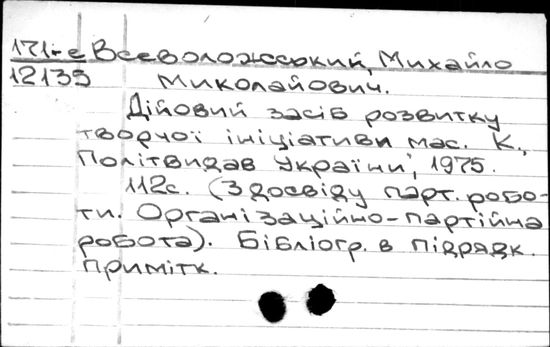 171-е Всеволожський, Михайло
12139 Миколайович.
Дійовий засіб розвитку
творчої ініціативи мас. К.,
Політвидав України, 1975.
112с. (З досвіду парт. робо-
ти. Організаційно-партійна
робота). Бібліогр. в підрядк.
примітк.